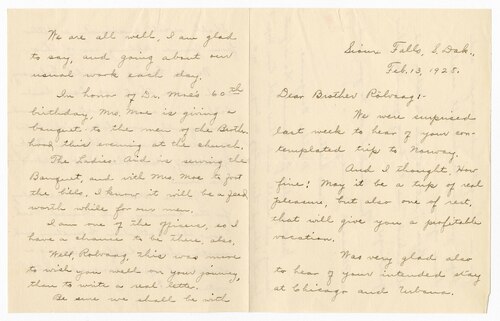 Sioux Falls, S. Dak.,
Feb. 13, 1928.
Dear Brother Rölvaag:-
We were surprised
last week to hear of your con-
templated trip to Norway.
And I thought, How
fine! May it be a trip of real
pleasure, but also one of rest,
that will give you a profitable
vacation.
Was very glad also
to hear of your intended stay
at Chicago and Urbana.
We are all well, I am glad
to say, and going about our
usual work each day.
In honor of Dr. Moe's 60th
birthday, Mrs. Moe is giving a
banquet to the men of the Brother-
hood this evening at the church.
The Ladies' Aid is serving the
Banquet, and with Mrs. Moe to foot
the bills, I know it will be a feed
worth while for our men.
I am one of the officers, so I
have a chance to be there, also.
Well, Rölvaag, this was more
to wish you well on your journey,
than to write a real letter.
Be sure we shall be with